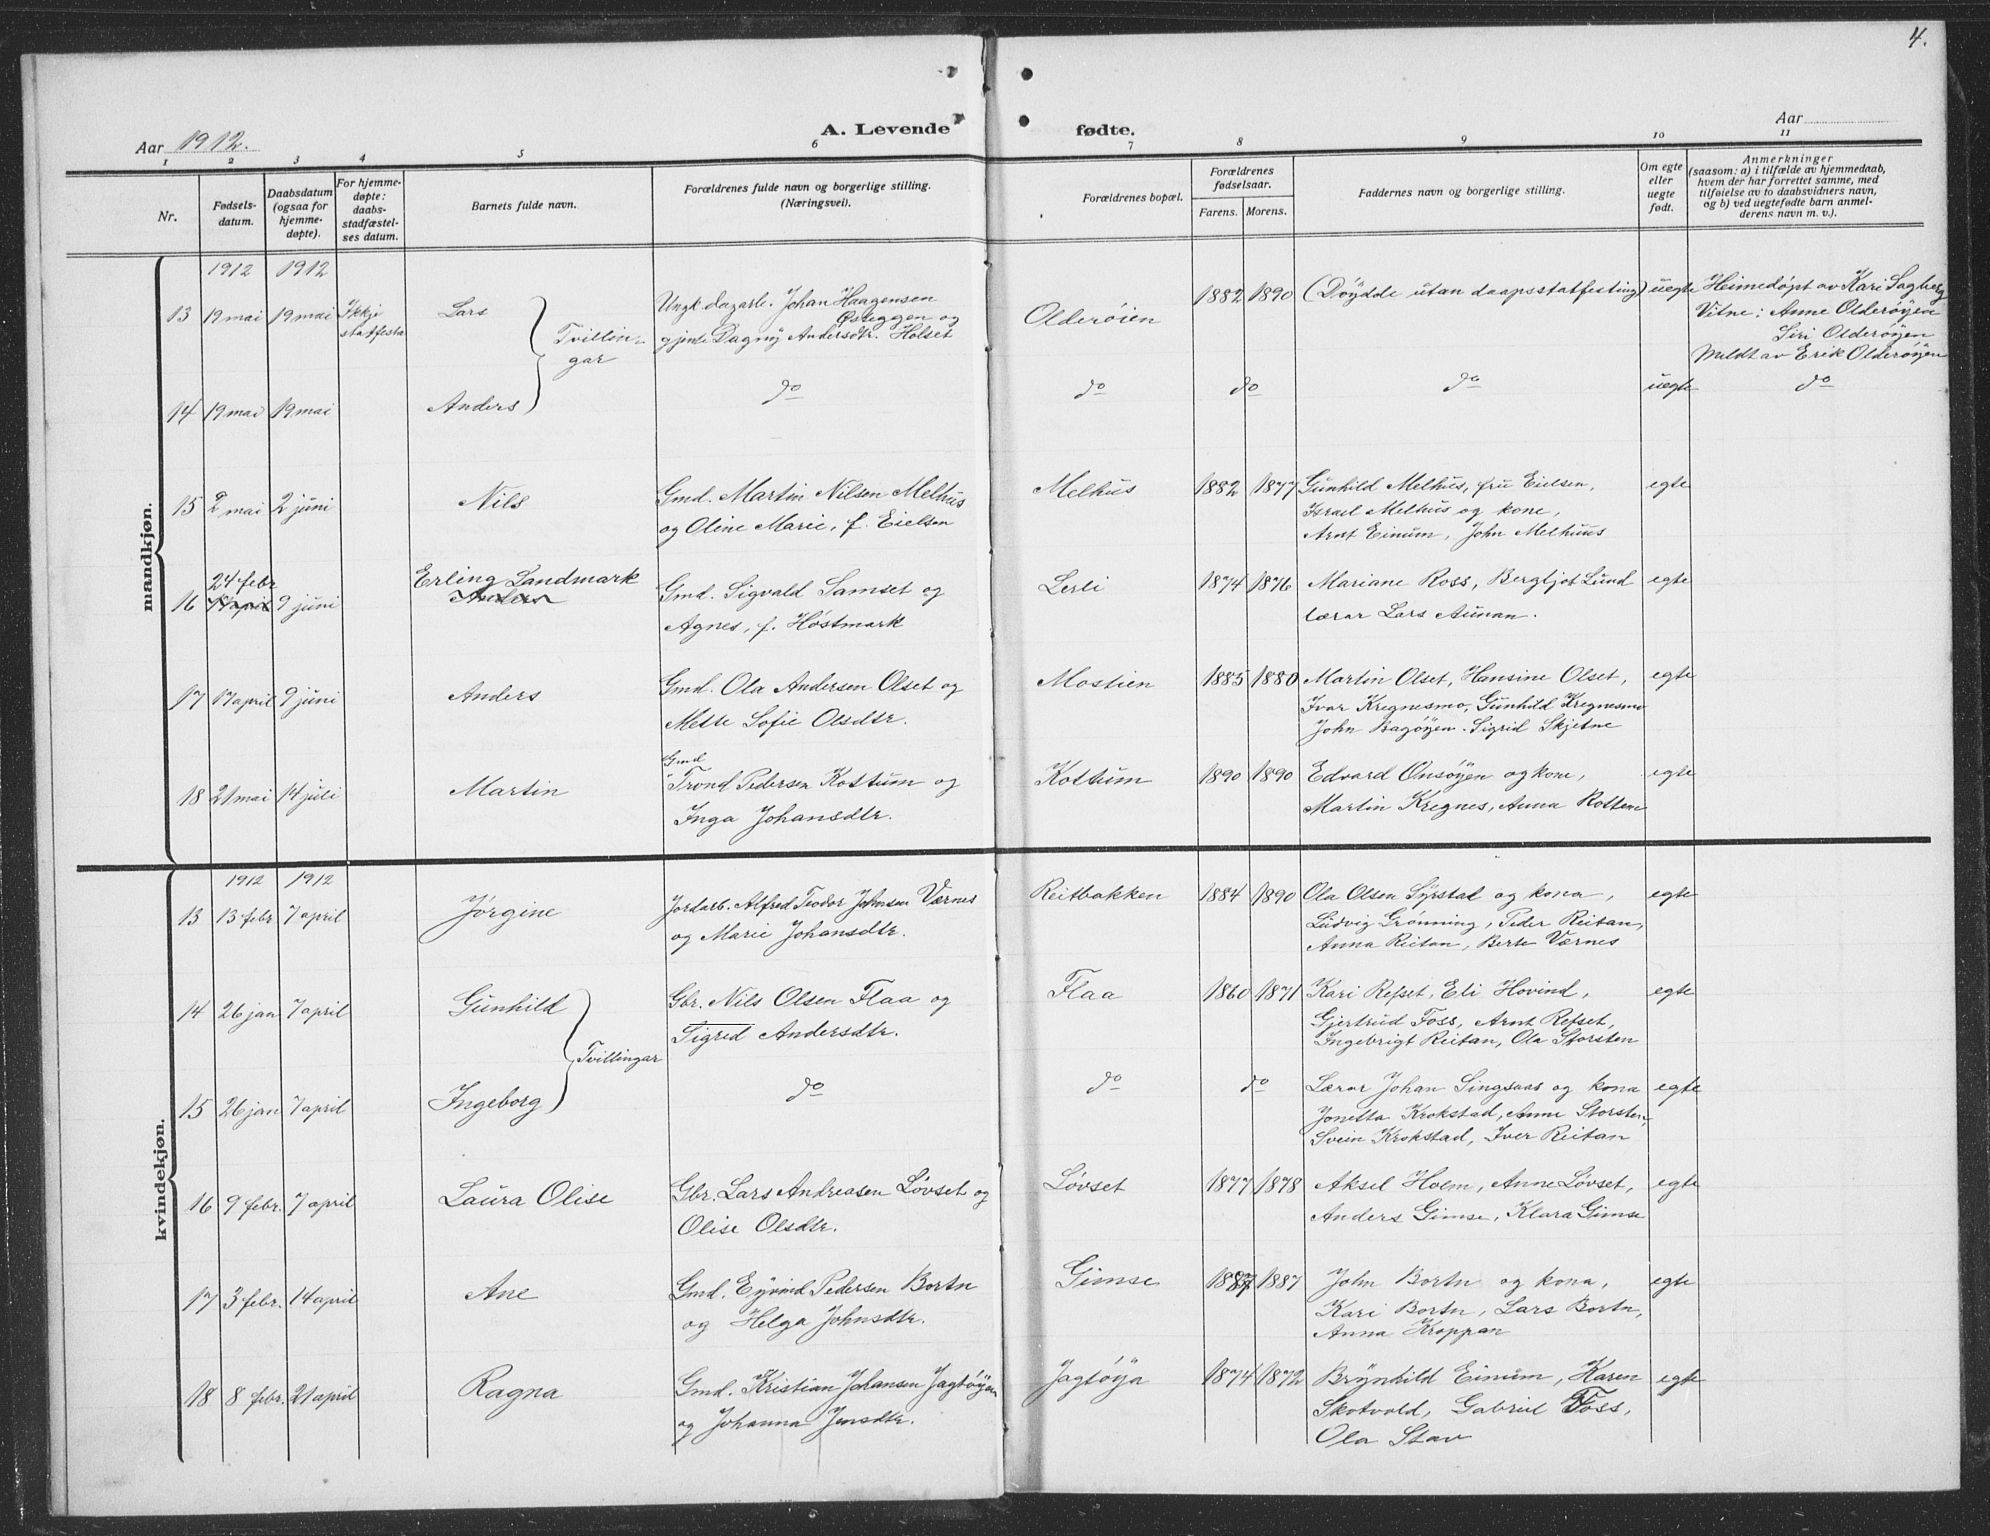 4.
Aar 1912. A. Levende fødte. Aar
1 2 3 4 5 6 7 8 9 10 11
Nr.
Fødsels-
datum.
Daabsdatum
(ogsaa for
hjemme-
døpte).
For hjemme-
døpte:
daabs-
stadfæstel-
ses datum.
Barnets fulde navn.
Forældrenes fulde navn og borgerlige stilling.
(Næringsvei).
Forældrenes bopæl.
Forældrenes
fødselsaar.
Farens. Morens.
Faddernes navn og borgerlige stilling.
Om egte
eller
uegte
født.
Anmerkninger
(saasom: a) i tilfælde av hjemmedaab,
hvem der har forrettet samme, med
tilføielse av to daabsvidners navn,
og b) ved uegtefødte barn anmel-
derens navn m. v.).
mandkjøn.
1912 1912
13 19 mai 19 mai Ikkje
statfesta
Lars
Tvillin-
gar
Ungk. dagarb. Johan Haagensen
Øseggen og
gjente Dagny Andersdtr. Holset
Olderøien 1882 1890 (Døydde utan daapsstatfesting) uegte
Heimedøpt av Kari Sagberg
Vitne: Anne Olderøyen
Siri Olderøyen
Meldt av Erik Olderøyen
14 19 mai 19 mai Anders do do do do uegte do
15 2 mai 2 juni Nils
Gmd. Martin Nilsen Melhus
og Oline Marie, f. Eielsen
Melhus 1882 1877
Gunhild Melhus, fru Eielsen,
Israel Melhus og kone,
Arnt Einum, John Melhuus
egte
16 24 febr 9 juni
Erling Landmark
Anders
Gmd. Sigvald Samset og
Agnes, f. Høstmark
Lerli 1874 1876
Mariane Ross, Bergljot Lund
lærar Lars Aunan.
egte
17 17 april 9 juni Anders
Gmd. Ola Andersen Olset og
Mette Sofie Olsdtr.
Mostien 1885 1880
Martin Olset, Hansine Olset,
Ivar Kregnesmo, Gunhild Kregnesmo
John Bagøyen. Sigrid Skjetne
egte
18 21 mai 14 juli Martin
Gmd
Trond Pedersen Kottum og
Inga Johansdtr.
Kottum 1890 1890
Edvard Onsøyen og kone,
Martin Kregnes, Anna
egte
kvindekjøn.
1912 1912
13 13 febr 7 april Jørgine
Jordarb. Alfred Teodor Johnsen Værnes
og Marie Johansdtr.
Reitbakken 1884 1890
Ola Olsen Syrstad og kona,
Ludvig Grønning, Peder Reitan,
Anna Reitan, Berte Værnes
egte
14 26 jan 7 april Gunhild
Tvillingar
Gbr. Nils Olsen Flaa og
Sigrid Andersdtr.
Flaa 1860 1871
Kari Refset, Eli Hovind,
Gjertrud Foss, Arnt Refset,
Ingebrigt Reitan, Ola Storsten
egte
15 26 jan 7 april Ingeborg do do do
Lærar Johan Singsaas og kona
Jonetta Krokstad, Anne Storsten,
Svein Krokstad, Iver Reitan
egte
16 9 febr. 7 april Laura Olise
Gbr. Lars Andreasen Løvset og
Olise Olsdtr.
Løvset 1877 1878
Aksel Holm, Anne Løvset,
Anders Gimse, Klara Gimse
egte
17 3 febr. 14 april Ane
Gmd. Eyvind Pedersen Bortn
og Helga Johnsdtr.
Gimse 1887 1887
John Bortn og kona,
Kari Bortn, Lars Bortn,
Anna Kroppan
egte
18 8 febr. 21 april Ragna
Gmd. Kristian Johansen Jagtøyen
og Johanna Jensdtr.
Jagtøya 1874 1872
Brynhild Einum, Karen
Skotvold, Gabriel Foss,
Ola Stav
egte